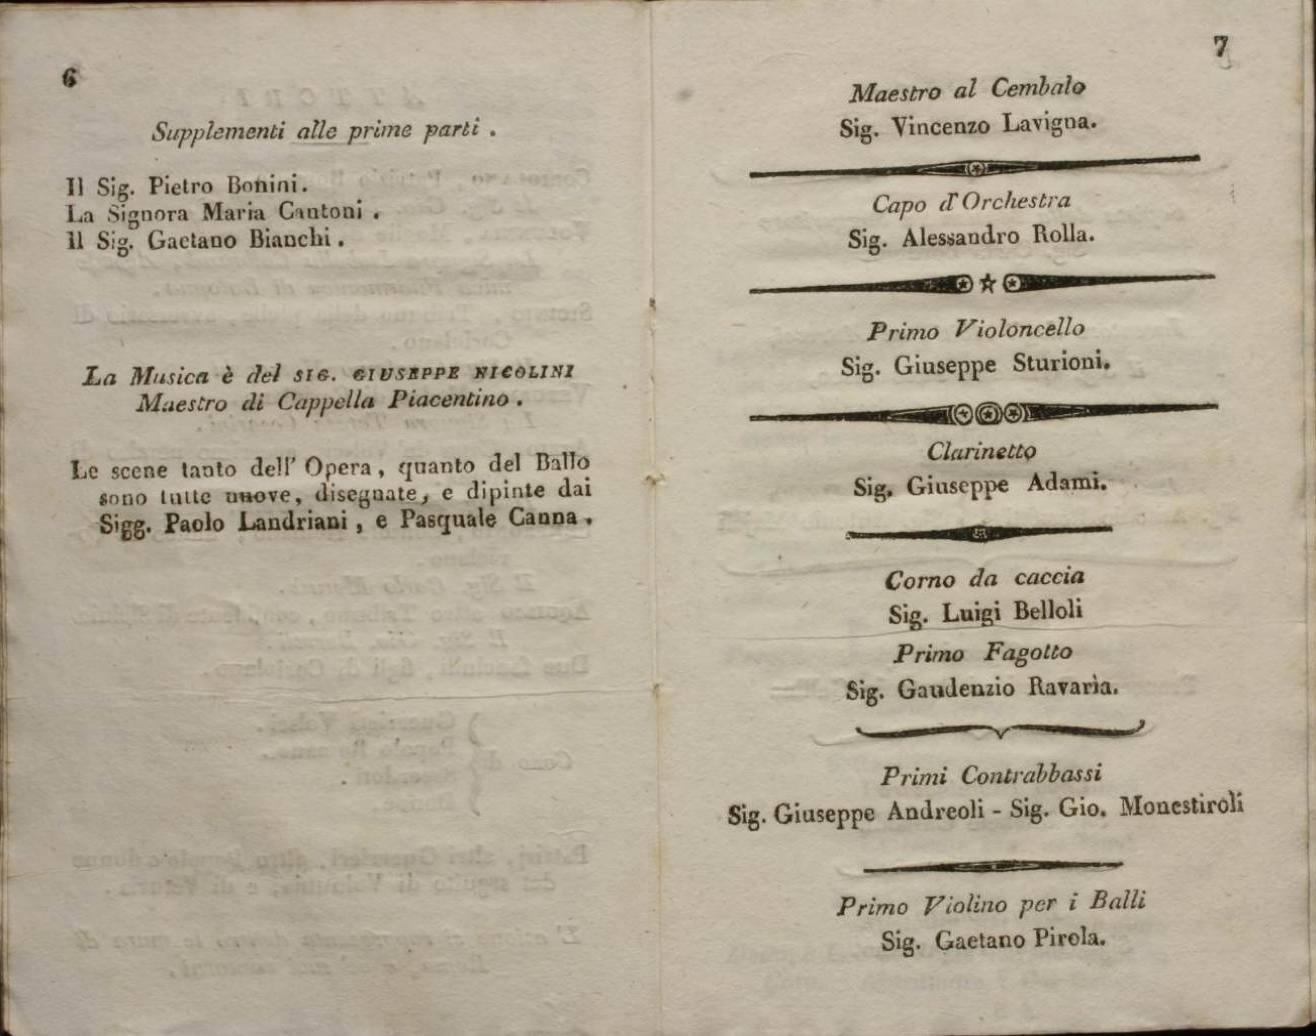 6
Supplementi alle prime parti .
Il Sig. Pietro Bonini.
La Signora Maria Cantoni .
Il Sig. Gaetano Bianchi .
La Musica è del SIG. GIUSEPPE NICOLINI
Maestro di Cappella Piacentino .
Le scene tanto dell' Opera , quanto del Ballo
sono tutte nuove, disegnate, e dipinte dai
Sigg. Paolo Landriani , e Pasquale Canna .
7
Maestro al Cembalo
Sig. Vincenzo Lavigna.
Capo d'Orchestra
Sig. Alessandro Rolla.
Primo Violoncello
Sig. Giuseppe Sturioni.
Clarinetto
Sig. Giuseppe Adami.
Corno da caccia
Sig. Luigi Belloli
Primo Fagotto
Sig. Gaudenzio Ravarìa.
Primi Contrabbassi
Sig. Giuseppe Andreoli - Sig. Gio. Monestiroli
Primo Violino per i Balli
Sig. Gaetano Pirola.